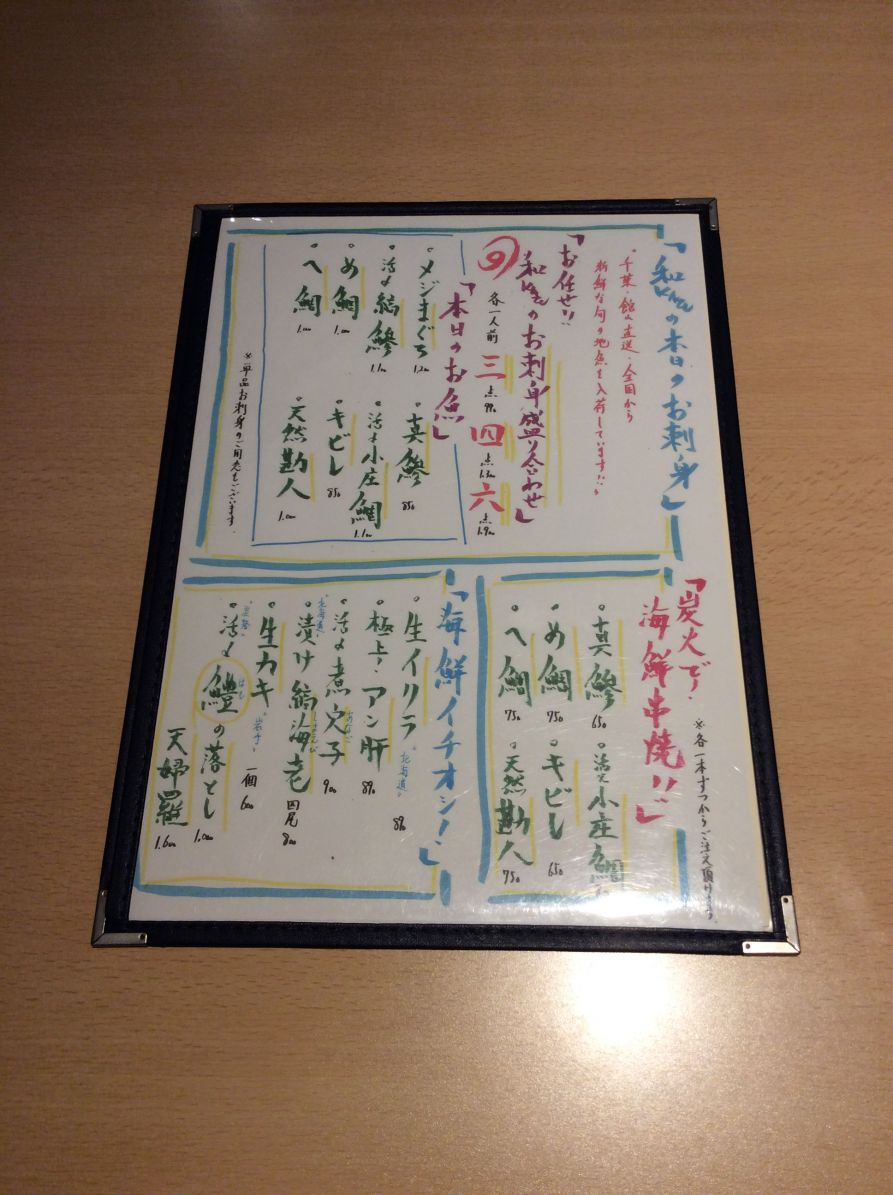 「和の本日のお刺身」
・千葉・館山直送・全国から
新鮮な旬の地魚を入荷しています!!
「お任せ!!
和のお刺身盛り合わせ」
各一人前 三点 四点 六点
「本日のお魚」
・メジまぐろ
・真鯵 850
・活〆縞鯵
・活〆小庄鯛
・め鯛
・キビレ 850
・へ鯛
・天然勘八
※単品お刺身のご用意もございます。
「炭火で!
海鮮串焼!!」
※各一本ずつからご注文頂けます。
・真鯵 650
・活〆小庄鯛
・め鯛 750
・キビレ 650
・へ鯛 750
・天然勘八 750
「海鮮イチオシ!」
・生イクラ "北海道"
・極上!アン肝
・活〆煮穴子 900
"北海道"
・漬け縞海老 四尾 800
・生カキ "岩手" 一個 600
・活〆鱧の落とし
はも
天婦羅